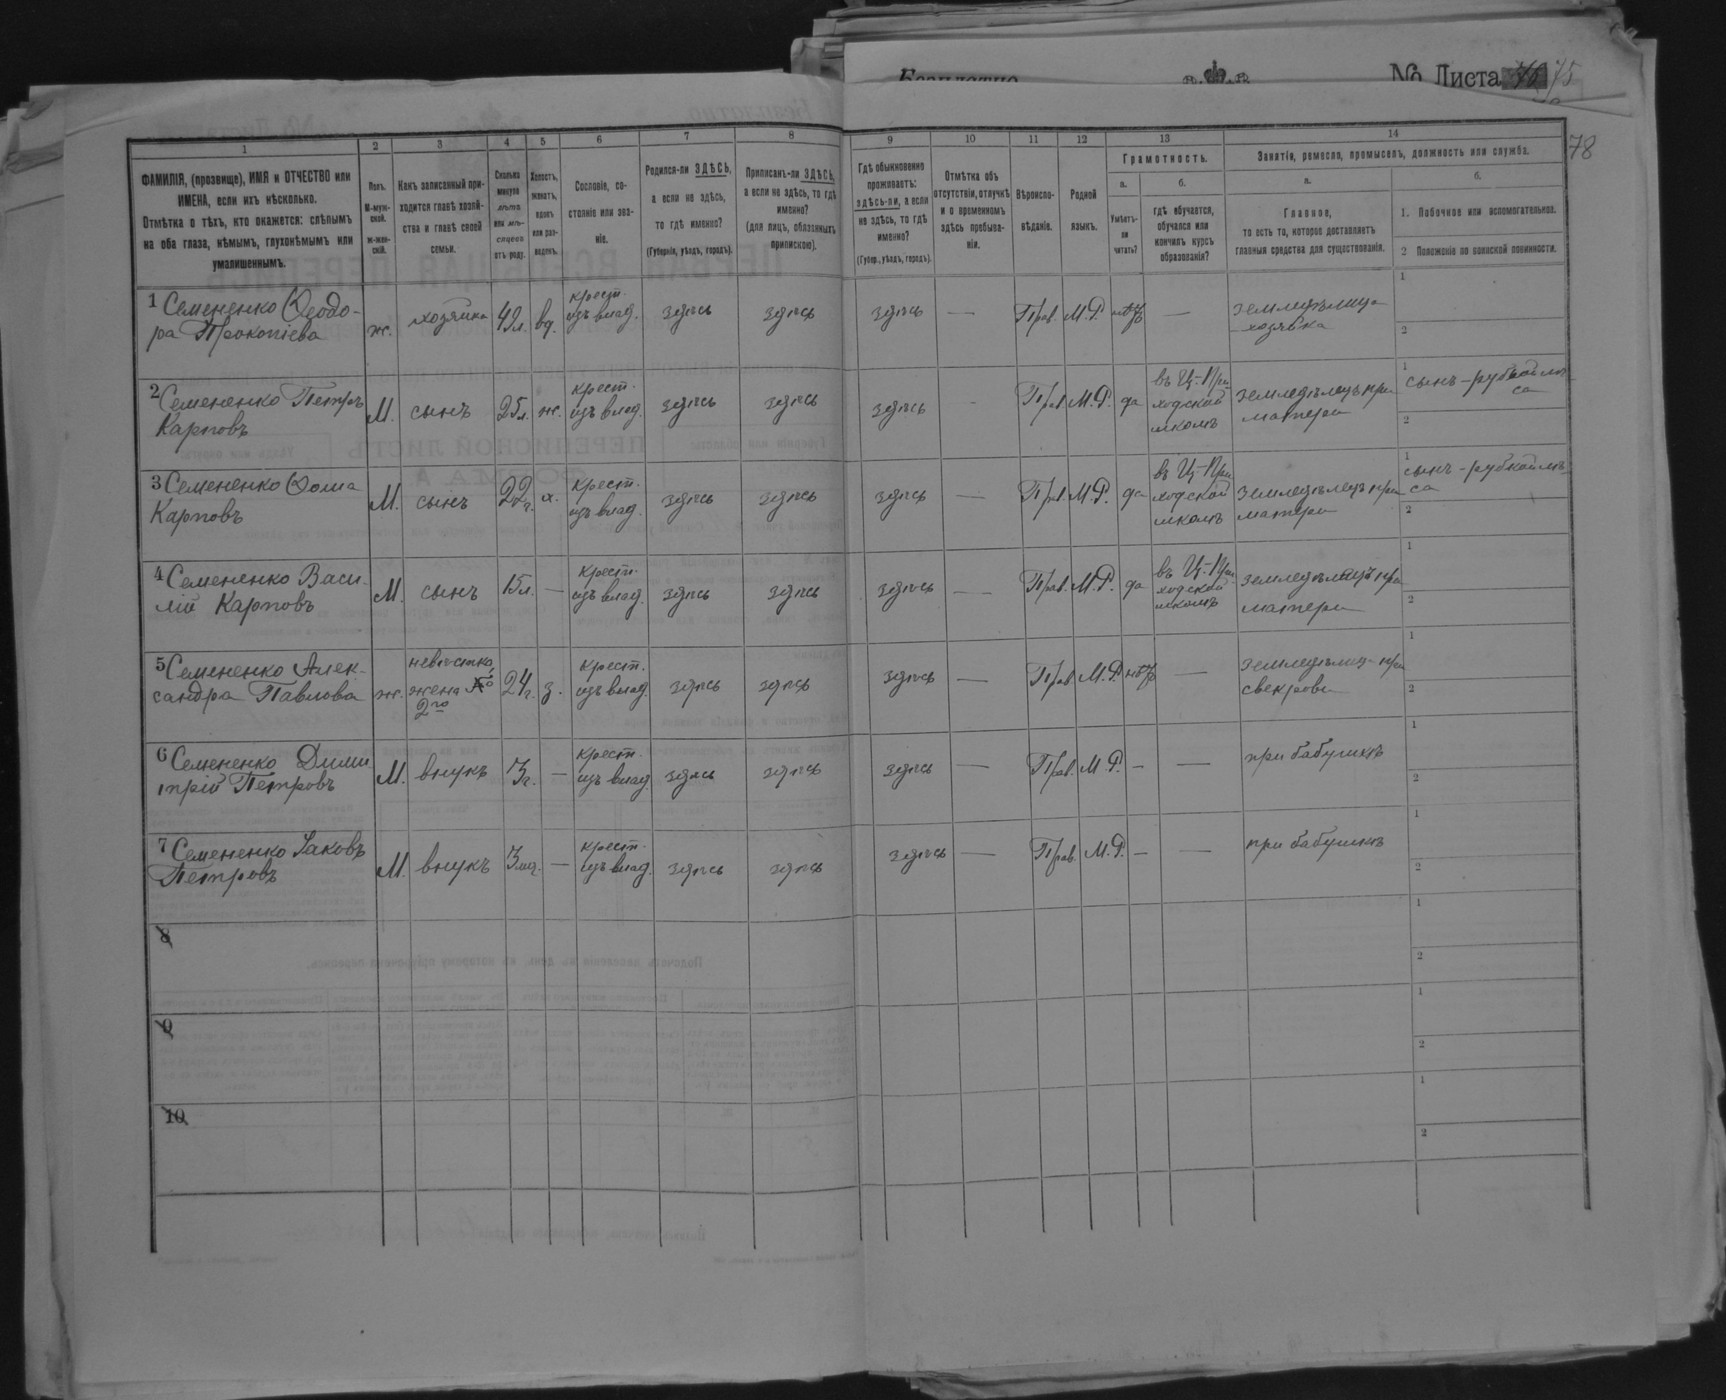 Безплатно.
№ Листа 75
78
1
2
3
4
5
6
7
8
9
10
11
12
13
14
ФАМИЛІЯ, (прозвище), ИМЯ и ОТЧЕСТВО или
ИМЕНА, если ихъ нѣсколько.
Отмѣтка о тѣхъ, кто окажется: слѣпымъ
на оба глаза, нѣмымъ, глухонѣмымъ или
умалишеннымъ.
Полъ.
М-муж-
ской.
ж-жен-
скій.
Какъ записанный при-
ходится главѣ хозяй-
ства и главѣ своей
семьи.
Сколько
минуло
лѣтъ
или мѣ-
сяцевъ
отъ роду.
Холостъ,
женатъ,
вдовъ
или раз-
веденъ.
Сословіе, со-
стояніе или зва-
ніе.
Родился-ли ЗДѢСЬ,
а если не здѣсь,
то гдѣ именно?
(Губернія, уѣздъ, городъ).
Приписанъ-ли ЗДѢСЬ,
а если не здѣсь, то гдѣ
именно?
(для лицъ, обязанныхъ
припискою).
Гдѣ обыкновенно
проживаетъ:
здѣсь-ли, а если
не здѣсь, то гдѣ
именно?
(Губер., уѣздъ, городъ).
Отмѣтка объ
отсутствіи, отлучкѣ
и о временномъ
здѣсь пребыва-
ніи.
Вѣроиспо-
вѣданіе.
Родной
языкъ.
Грамотность.
а.
Умѣетъ-
ли
читать?
б.
гдѣ обучается,
обучался или
кончилъ курсъ
образованія?
Занятіе, ремесло, промыселъ, должность или служба.
а.
Главное,
то есть то, которое доставляетъ
главныя средства для существованія.
б.
1. Побочное или вспомогательное.
2 Положеніе по воинской повинности.
1 Семененко Ѳеодо-
ра Прокопіева
ж.
хозяйка
49 л.
вд.
крест.
изъ влад.
здѣсь
здѣсь
здѣсь
—
Прав.
М. Р.
нѣтъ
—
земледѣлица
хозяйка
1
2
2 Семененко Петръ
Карповъ
М.
сынъ
25 л.
ж.
крест.
изъ влад.
здѣсь
здѣсь
здѣсь
-
Прав.
М. Р.
да
въ Ц-При-
ходской
школѣ
земледѣлецъ при
матери
1
сынъ - рубкой лѣ-
са
2
3 Семененко Ѳома
Карповъ
М.
сынъ
22 г.
х.
крест.
изъ влад.
здѣсь
здѣсь
здѣсь
—
Прав.
М. Р.
да
въ Ц-При-
ходской
школѣ
земледѣлецъ при
матери
1
сынъ - рубкой лѣ-
са
2
4 Семененко Васи-
лій Карповъ
М.
сынъ
15 л.
—
крест.
изъ влад.
здѣсь
здѣсь
здѣсь
—
Прав.
М. Р.
да
въ Ц-При-
ходской
школѣ
земледѣлецъ при
матери
1
2
5 Семененко Алек-
сандра Павлова
ж.
невѣстка,
жена №
2го
24 г.
з.
крест.
изъ влад.
здѣсь
здѣсь
здѣсь
—
Прав.
М. Р.
нѣтъ
—
земледѣлиц- при
свекрови
1
2
6 Семененко Дими-
трій Петровъ
М.
внукъ
3 г.
—
крест.
изъ влад.
здѣсь
здѣсь
здѣсь
—
Прав.
М. Р.
—
—
при бабушкѣ
1
2
7 Семененко Іаковъ
Петровъ
М.
внукъ
3 мц.
—
крест.
изъ влад.
здѣсь
здѣсь
здѣсь
—
Прав.
М. Р.
—
—
при бабушкѣ
1
2
8
1
2
9
1
2
10
1
2